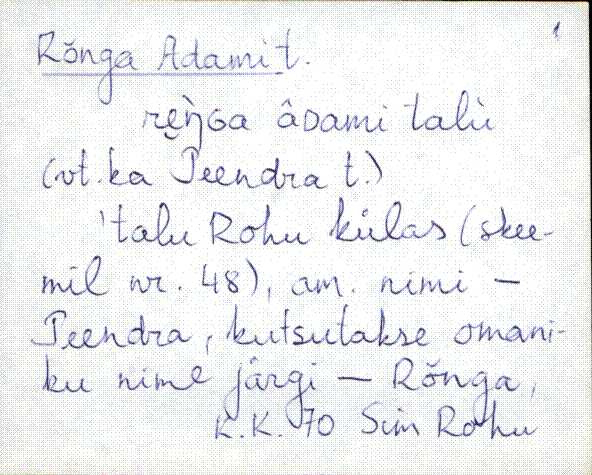 1
Rõnga Adami t.
re̮ŋ̀ɢa âᴅami talù
(vt. ka Peendra t.)
'talu Rohu külas (skee-
mil nr. 48), am. nimi –
Peendra, kutsutakse omani-
ku nime järgi – Rõnga,
K.K. 70 Sim Rohu